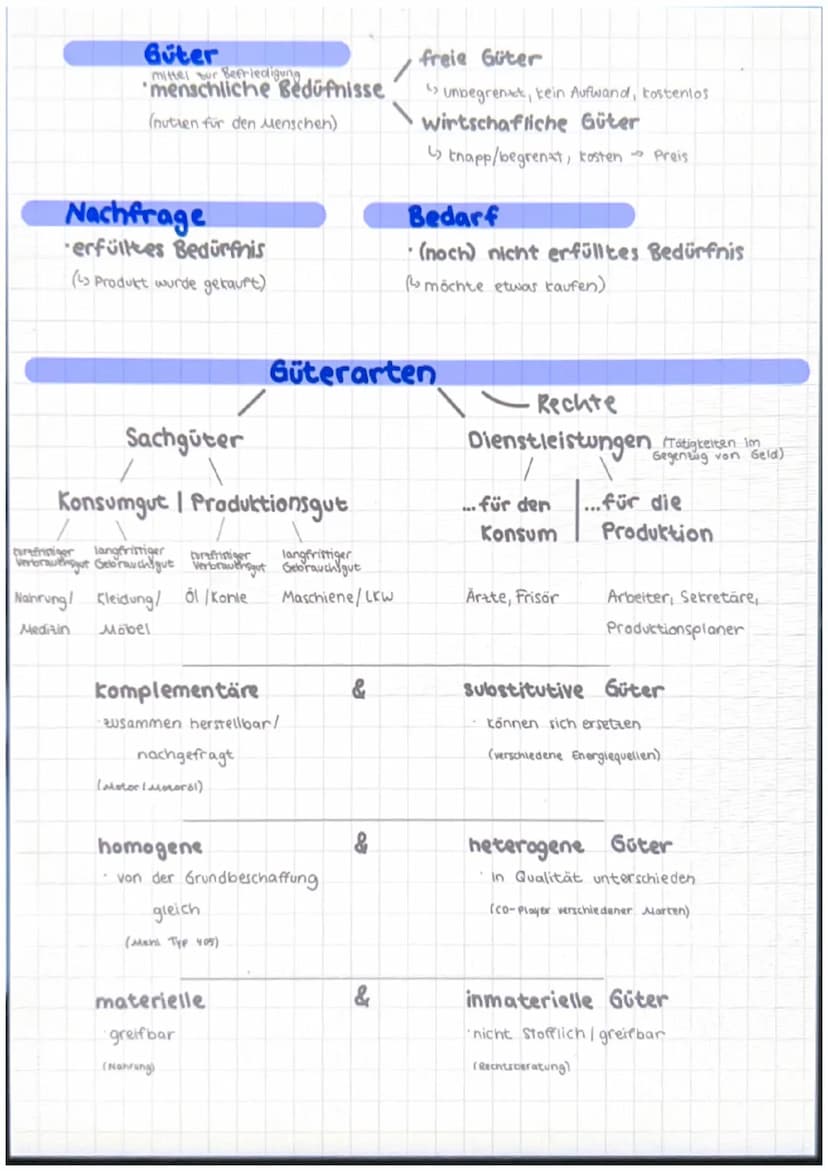 Güter
mittel zur Befriedigung
· menschliche Bedüfnisse
(nutzen für den Menschen)
freie Güter
↳ unbegrenzt, kein Aufwand, kostenlos
wirtschafliche Güter
↳ knapp/begrenzt, kosten → Preis
Nachfrage
· erfülltes Bedürfnis
(↳ Produkt wurde gekauft)
Bedarf
· (noch) nicht erfülltes Bedürfnis
(↳ möchte etwas kaufen)
Güterarten
Rechte
Sachgüter
Dienstleistungen (Tätigkeiten im
Gegenzug von Geld)
Konsumgut | Produktionsgut
...für den
Konsum
...für die
Produktion
kurzfristiger
Verbrauchsgut
langfristiger
Gebrauchsgut
kurzfristiger
Verbrauchsgut
langfristiger
Gebrauchsgut
Nahrung/
Medizin
Kleidung/
Möbel
Öl / Kohle
Maschiene/ LKW
Ärzte, Frisör
Arbeiter, Sekretäre,
Produktionsplaner
komplementäre & substitutive Güter
· zusammen herstellbar/
nachgefragt
(Motor | Motoröl)
· können sich ersetzen
(verschiedene Energiequellen)
homogene & heterogene Güter
· von der Grundbeschaffung
gleich
(Mehl Typ 405)
· in Qualität unterschieden
(CD-Player verschiedener Marken)
materielle & inmaterielle Güter
· greifbar
(Nahrung)
· nicht Stofflich | greifbar
(Rechtsberatung)